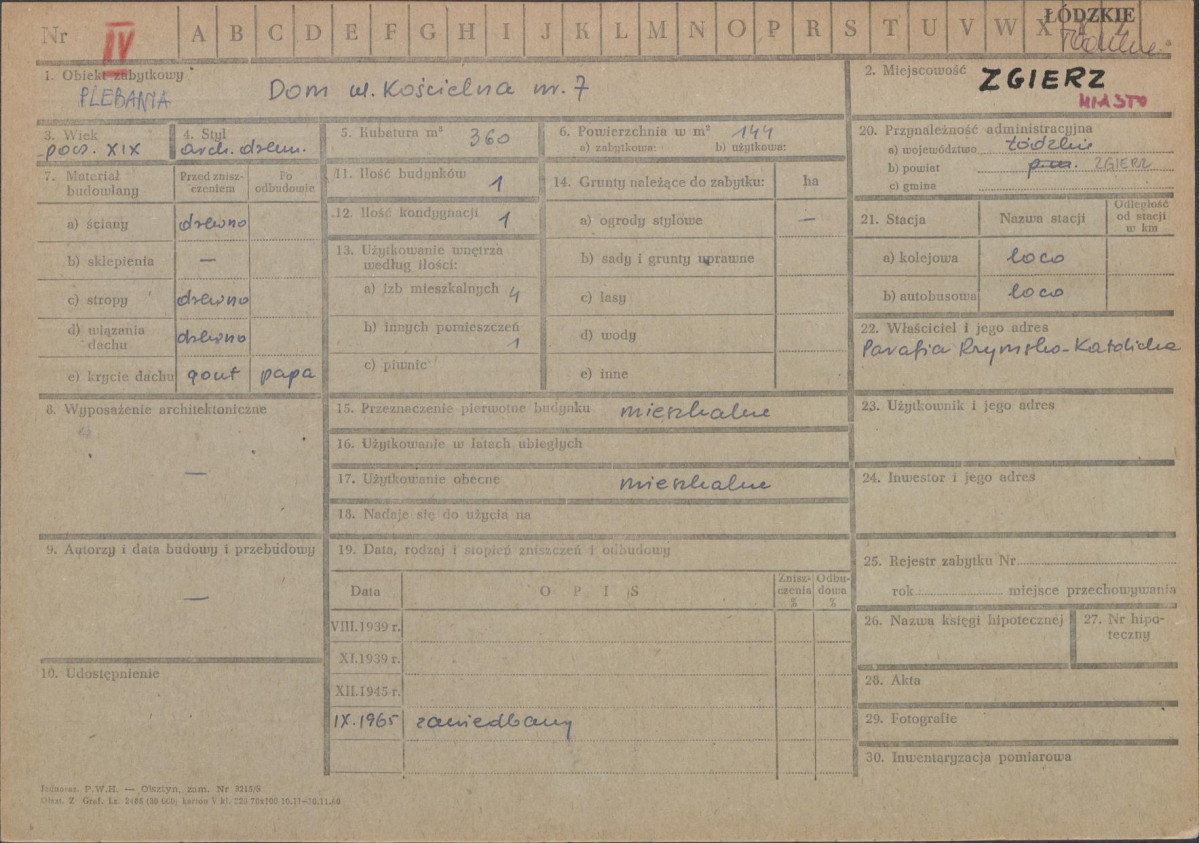 Nr IV A B C D E F G H I J K L M N O P R S T U V W X Y Z
ŁÓDZKIE
1. Obiekt zabytkowy
PLEBANIA
Dom ul. Kościelna nr. 7
2. Miejscowość ZGIERZ
MIASTO
3. Wiek
pocz. XIX
4. Styl
arch. drewn.
5. Kubatura m³ 360
6. Powierzchnia w m² 144
a) zabytkowa: b) użytkowa:
7. Materiał budowlany
Przed znisz-
czeniem
Po
odbudowie
a) ściany drewno
b) sklepienia —
c) stropy drewno
d) wiązania
dachu drewno
e) krycie dachu gont papa
8. Wyposażenie architektoniczne
—
9. Autorzy i data budowy i przebudowy
—
10. Udostępnienie
11. Ilość budynków 1
12. Ilość kondygnacji 1
13. Użytkowanie wnętrza
według ilości:
a) izb mieszkalnych 4
b) innych pomieszczeń
1
c) piwnic
14. Grunty należące do zabytku: ha
a) ogrody stylowe —
b) sady i grunty uprawne
c) lasy
d) wody
e) inne
15. Przeznaczenie pierwotne budynku mieszkalne
16. Użytkowanie w latach ubiegłych
17. Użytkowanie obecne mieszkalne
18. Nadaje się do użycia na
19. Data, rodzaj i stopień zniszczeń i odbudowy
Data O P I S
Znisz-
czenia
%
Odbu-
dowa
%
VIII.1939 r.
XI.1939 r.
XII.1945 r.
IX.1965 zaniedbany
20. Przynależność administracyjna
a) województwo Łódzkie
b) powiat ZGIERZ
c) gmina
21. Stacja Nazwa stacji
Odległość
od stacji
w km
a) kolejowa loco
b) autobusowa loco
22. Właściciel i jego adres
Parafia Rzymsko-Katolicka
23. Użytkownik i jego adres
24. Inwestor i jego adres
25. Rejestr zabytku Nr
rok miejsce przechowywania
26. Nazwa księgi hipotecznej
27. Nr hipo-
teczny
28. Akta
29. Fotografie
30. Inwentaryzacja pomiarowa
Jednoraz. P.W.H. — Olsztyn, zam. Nr